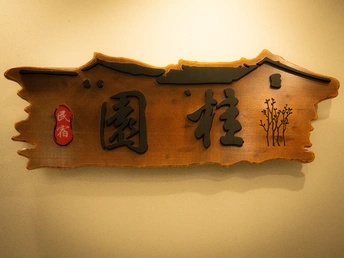 桂園
民宿